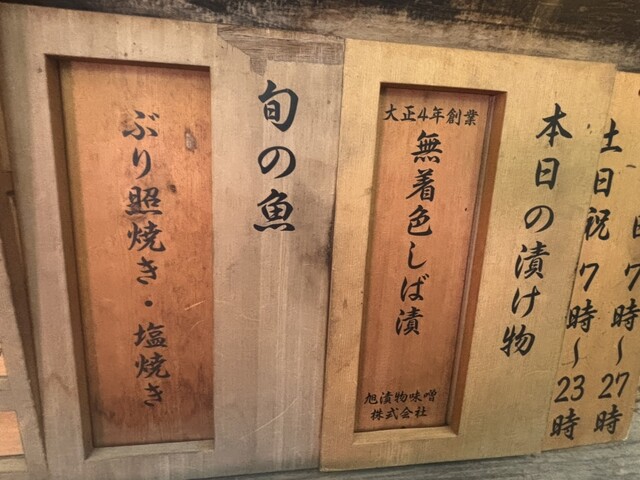 土日祝 7時〜23時
7時〜27時
本日の漬け物
大正4年創業
無着色しば漬
旭漬物味噌
株式会社
旬の魚
ぶり照焼き・塩焼き